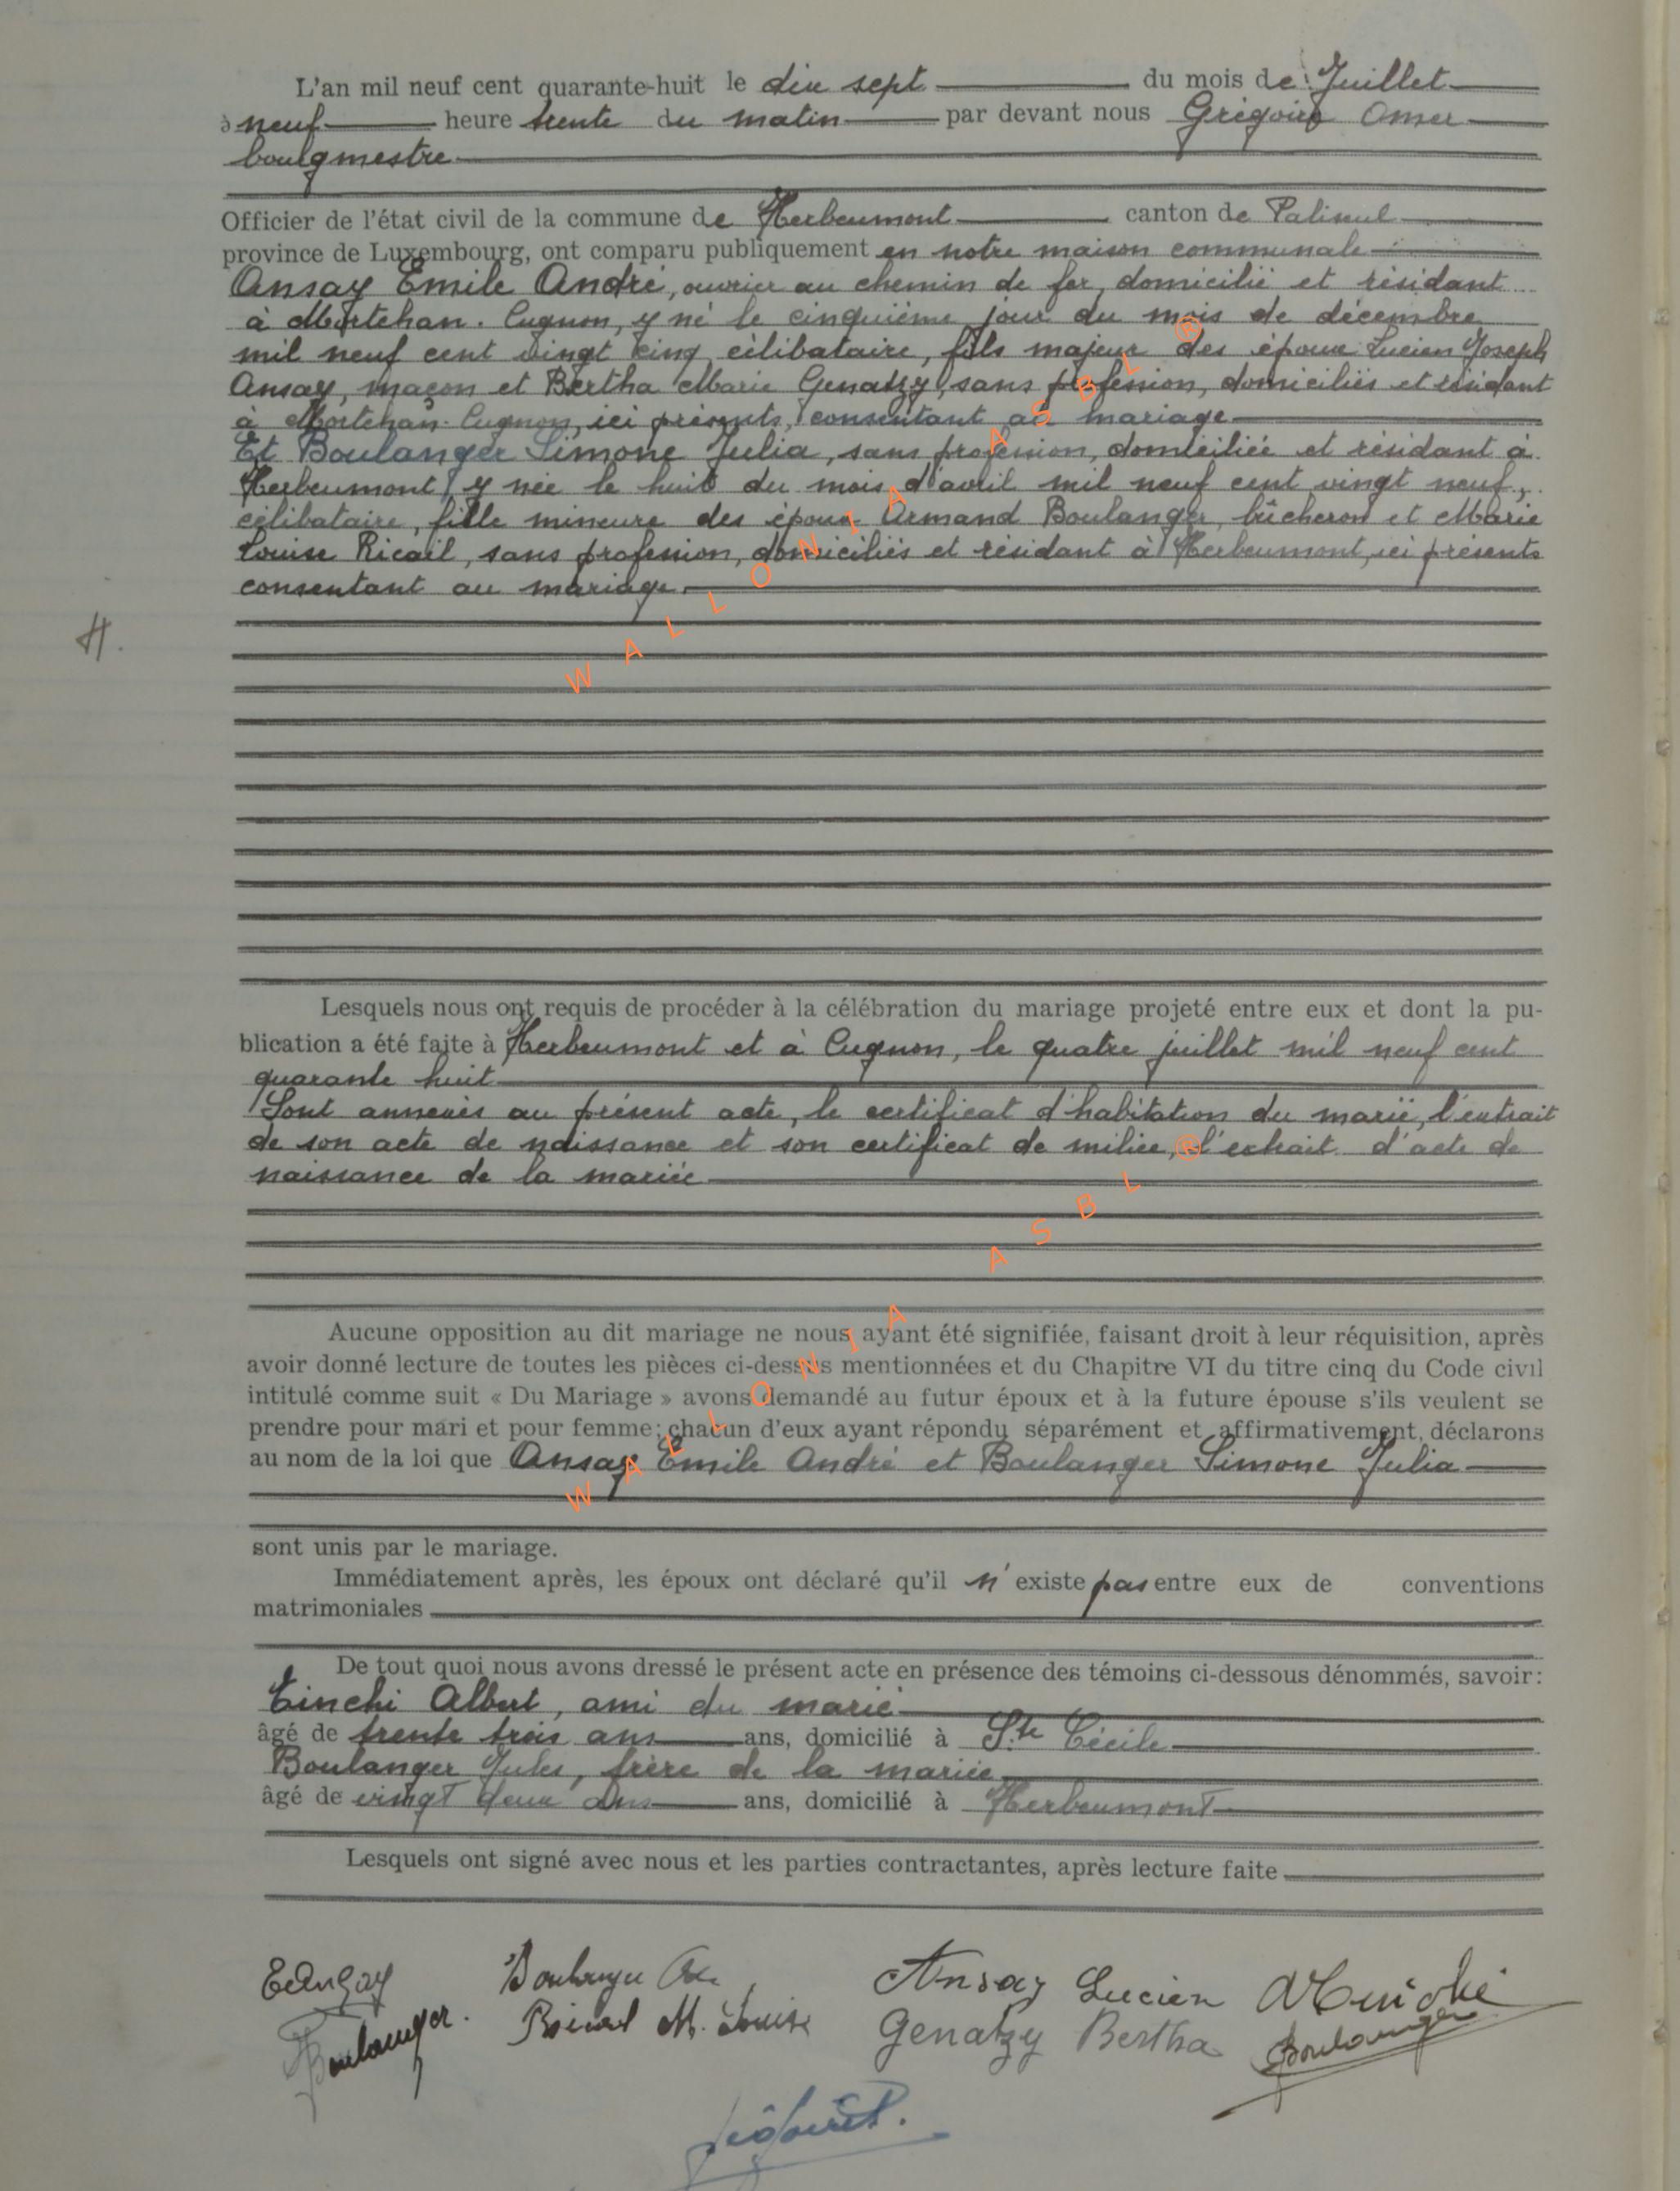 L'an mil neuf cent quarante-huit le dix sept du mois de Juillet
à neuf heure trente du matin par devant nous Grégoire Omer
bourgmestre
Officier de l'état civil de la commune de Herbeumont canton de Paliseul
province de Luxembourg, ont comparu publiquement en notre maison communale
Ansay Emile André, ouvrier au chemin de fer, domicilié et résidant
à Mortehan. Cugnon, y né le cinquième jour du mois de décembre
mil neuf cent vingt cinq, célibataire, fils majeur des époux Lucien Joseph
Ansay, maçon et Bertha Marie Genatzy, sans profession, domiciliés et résidant
à Mortehan. Cugnon, ici présents, consentant au mariage
Et Boulanger Simone Julia, sans profession, domiciliée et résidant à
Herbeumont, y née le huit du mois d'avril mil neuf cent vingt neuf,
célibataire, fille mineure des époux Armand Boulanger, bûcheron et Marie
Louise Ricail, sans profession, domiciliés et résidant à Herbeumont, ici présents
consentant au mariage.
H.
Lesquels nous ont requis de procéder à la célébration du mariage projeté entre eux et dont la pu-
blication a été faite à Herbeumont et à Cugnon, le quatre juillet mil neuf cent
quarante huit
Sont annexés au présent acte, le certificat d'habitation du marié, l'extrait
de son acte de naissance et son certificat de milice, l'extrait d'acte de
naissance de la mariée
Aucune opposition au dit mariage ne nous ayant été signifiée, faisant droit à leur réquisition, après
avoir donné lecture de toutes les pièces ci-dessus mentionnées et du Chapitre VI du titre cinq du Code civil
intitulé comme suit « Du Mariage » avons demandé au futur époux et à la future épouse s'ils veulent se
prendre pour mari et pour femme; chacun d'eux ayant répondu séparément et affirmativement, déclarons
au nom de la loi que Ansay Emile André et Boulanger Simone Julia
sont unis par le mariage.
Immédiatement après, les époux ont déclaré qu'il n'existe pas entre eux de conventions
matrimoniales
De tout quoi nous avons dressé le présent acte en présence des témoins ci-dessous dénommés, savoir:
Tinchi Albert, ami du marié
âgé de trente trois ans ans, domicilié à Ste Cécile
Boulanger Jules, frère de la mariée
âgé de vingt deux ans ans, domicilié à Herbeumont
Lesquels ont signé avec nous et les parties contractantes, après lecture faite
EAnsay Boulanger Ansay Lucien
Boulanger. Ricail M. Louise Genatzy Bertha Boulanger
WALLONIA ASBL ®
WALLONIA ASBL ®